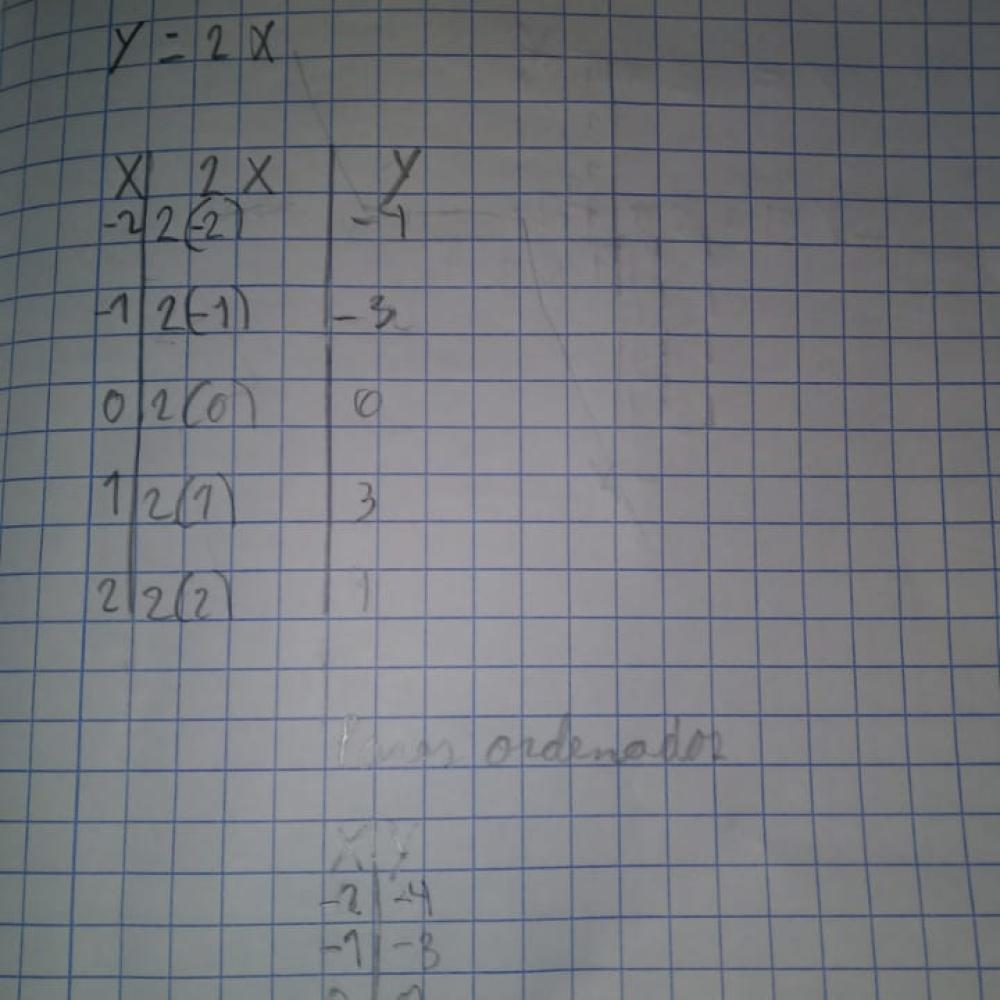 y = 2 x
x 2 x y
-2 2(-2) -4
-1 2(-1) -3
0 2(0) 0
1 2(1) 3
2 2(2) 1
Pares ordenados
x y
-2 -4
-1 -3